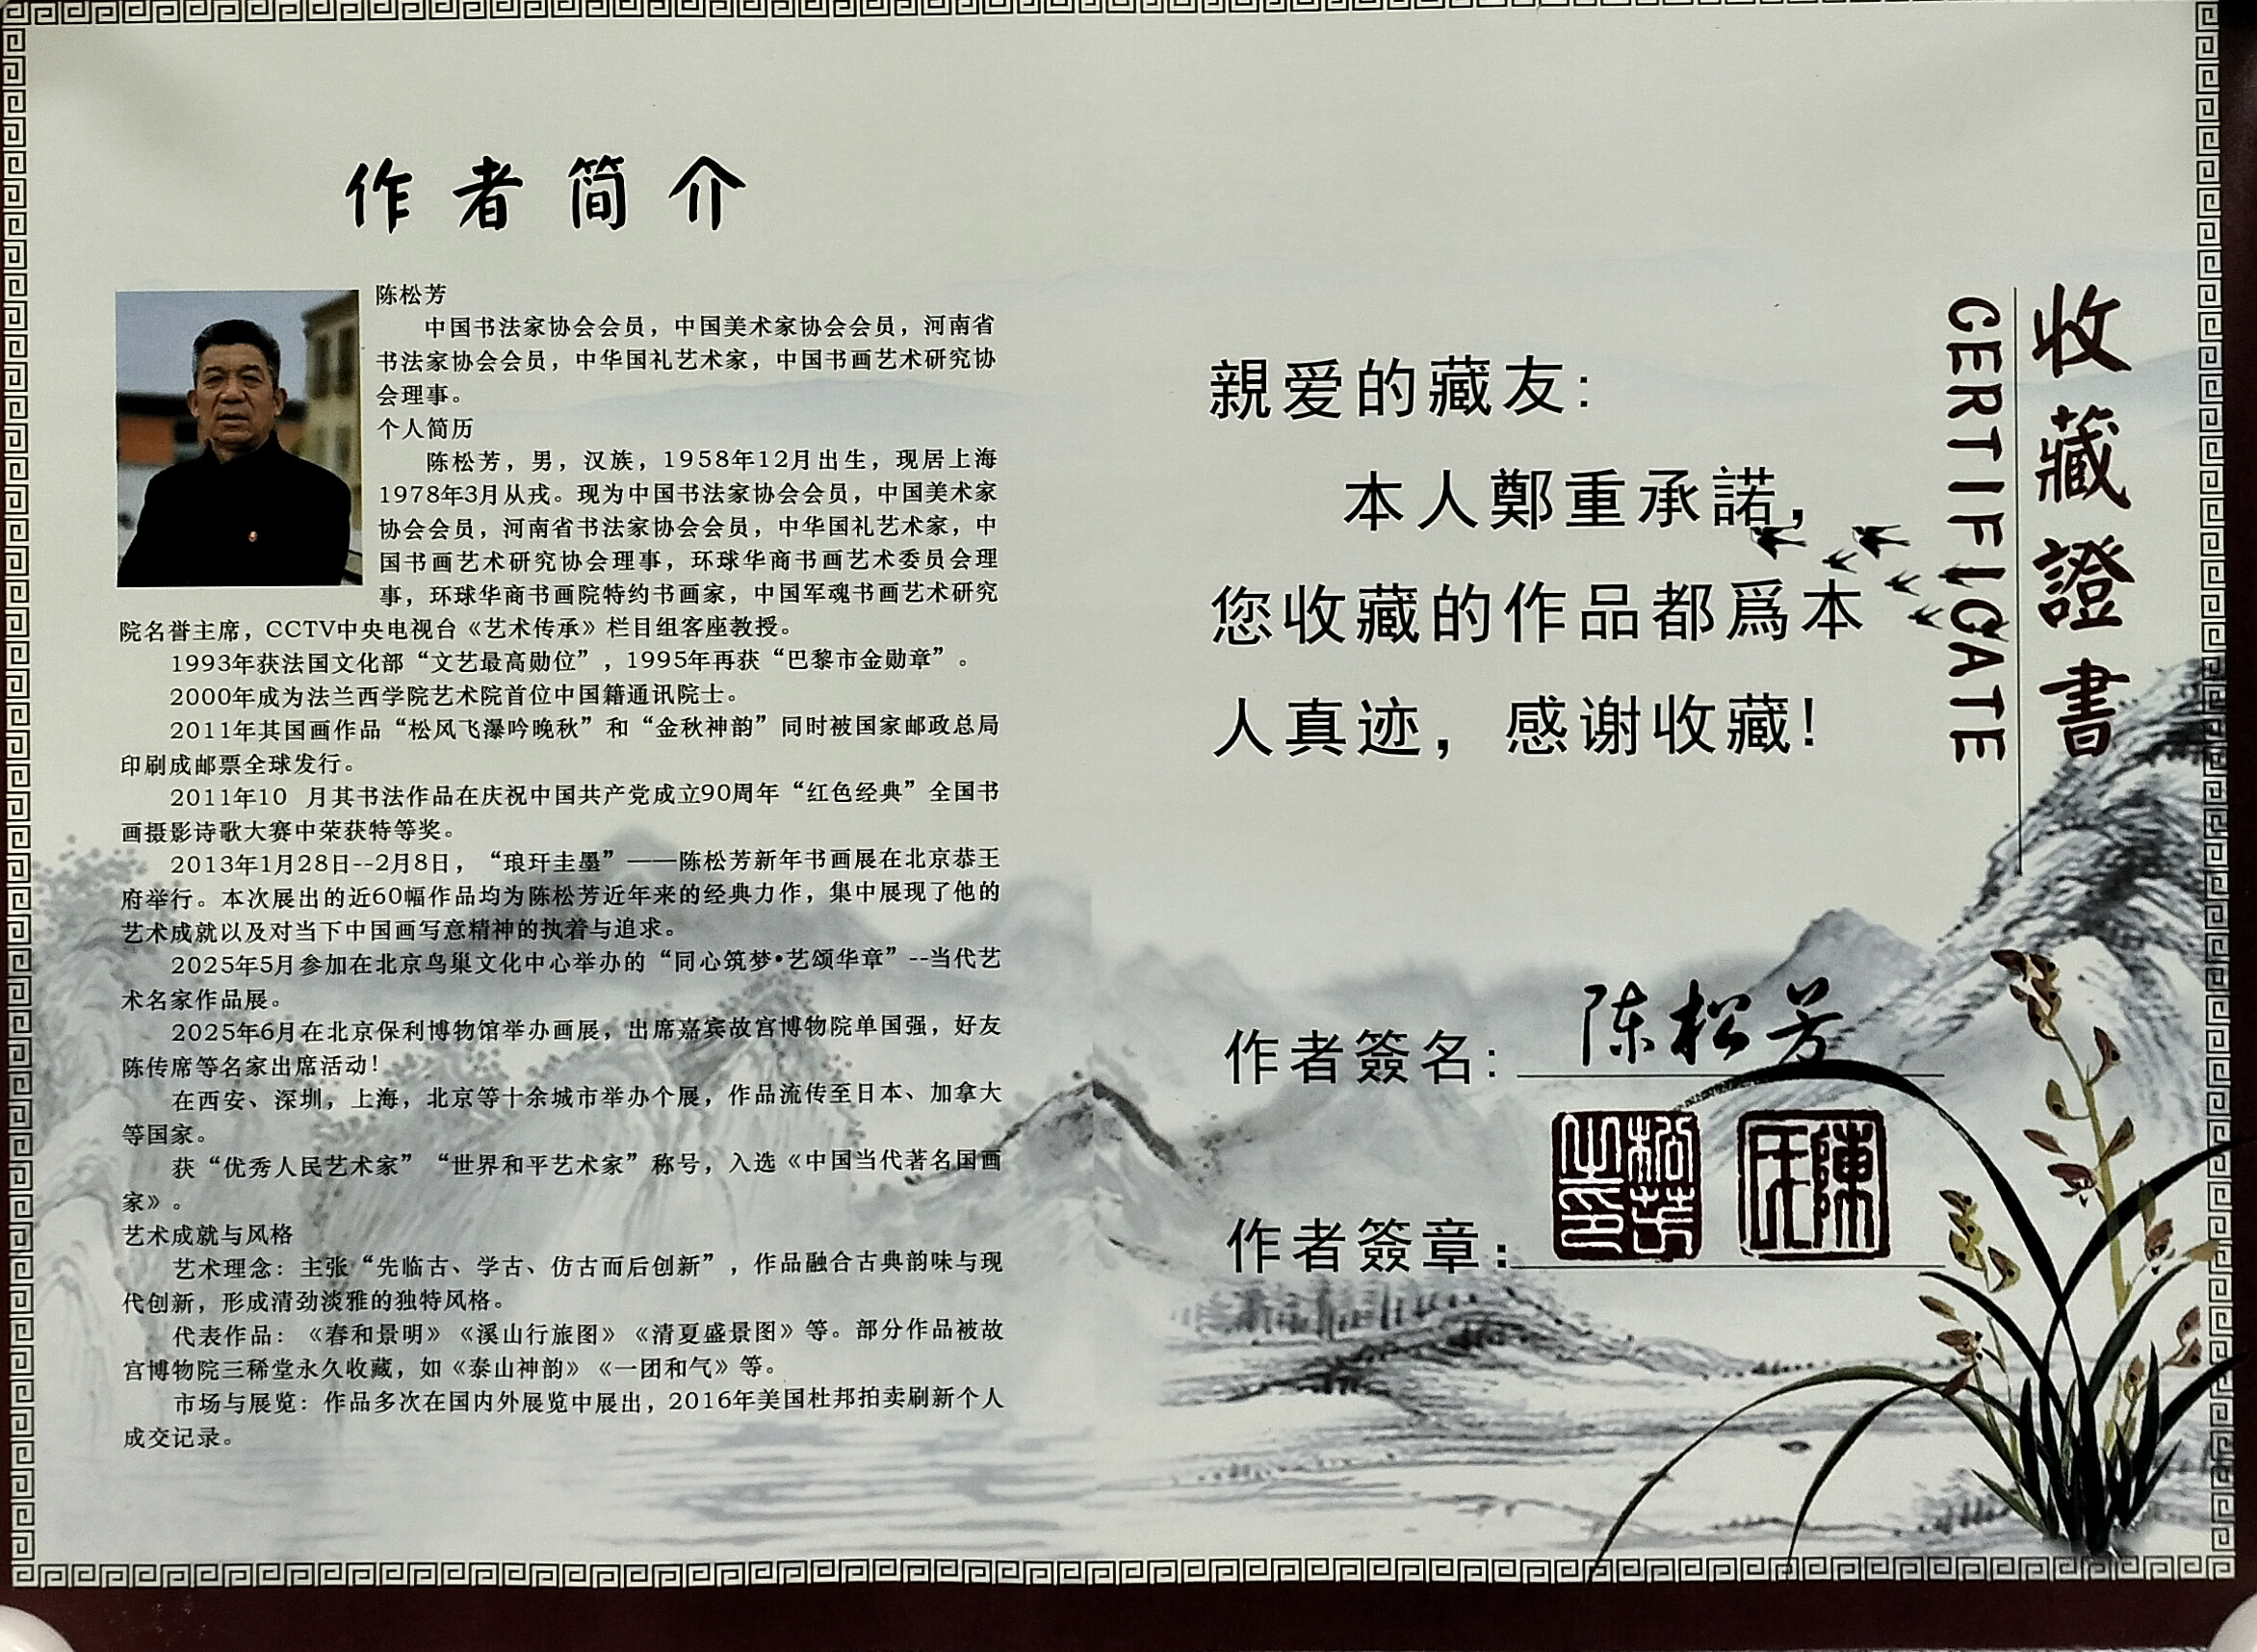 作者简介
陈松芳
中国书法家协会会员，中国美术家协会会员，河南省
书法家协会会员，中华国礼艺术家，中国书画艺术研究协
会理事。
个人简历
陈松芳，男，汉族，1958年12月出生，现居上海
1978年3月从戎。现为中国书法家协会会员，中国美术家
协会会员，河南省书法家协会会员，中华国礼艺术家，中
国书画艺术研究协会理事，环球华商书画艺术委员会理
事，环球华商书画院特约书画家，中国军魂书画艺术研究
院名誉主席，CCTV中央电视台《艺术传承》栏目组客座教授。
1993年获法国文化部“文艺最高勋位”，1995年再获“巴黎市金勋章”。
2000年成为法兰西学院艺术院首位中国籍通讯院士。
2011年其国画作品“松风飞瀑吟晚秋”和“金秋神韵”同时被国家邮政总局
印刷成邮票全球发行。
2011年10 月其书法作品在庆祝中国共产党成立90周年“红色经典”全国书
画摄影诗歌大赛中荣获特等奖。
2013年1月28日--2月8日，“琅玕圭墨”——陈松芳新年书画展在北京恭王
府举行。本次展出的近60幅作品均为陈松芳近年来的经典力作，集中展现了他的
艺术成就以及对当下中国画写意精神的执着与追求。
2025年5月参加在北京鸟巢文化中心举办的“同心筑梦•艺颂华章”--当代艺
术名家作品展。
2025年6月在北京保利博物馆举办画展，出席嘉宾故宫博物院单国强，好友
陈传席等名家出席活动！
在西安、深圳，上海，北京等十余城市举办个展，作品流传至日本、加拿大
等国家。
获“优秀人民艺术家”“世界和平艺术家”称号，入选《中国当代著名国画
家》。
艺术成就与风格
艺术理念：主张“先临古、学古、仿古而后创新”，作品融合古典韵味与现
代创新，形成清劲淡雅的独特风格。
代表作品：《春和景明》《溪山行旅图》《清夏盛景图》等。部分作品被故
宫博物院三稀堂永久收藏，如《泰山神韵》《一团和气》等。
市场与展览：作品多次在国内外展览中展出，2016年美国杜邦拍卖刷新个人
成交记录。
收藏證書
CERTIFICATE
親爱的藏友：
本人鄭重承諾，
您收藏的作品都爲本
人真迹，感谢收藏！
作者簽名：陈松芳
作者簽章：
松芳之印
陳氏